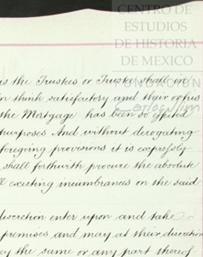 CENTRO DE
ESTUDIOS
DE HISTORIA
DE MEXICO
FUNDACIÓN
Carlos Slim
as the Trustee or Trustees shall in
think satisfactory and their
the Mortgage has been so
purposes And without derogating
foregoing provisions it is expressly
shall forthwith procure the absolute
existing incumbrances on the said
discretion enter upon and take
premises and may at their discretion
the same or any part thereof